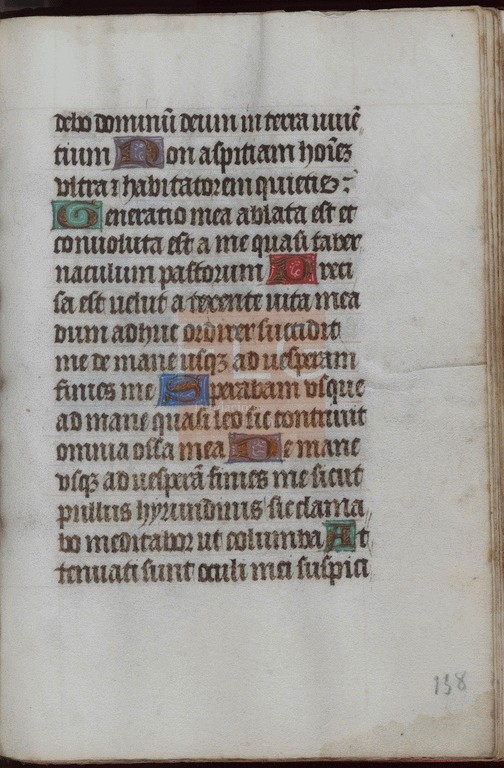 debo dominū deum in terra uiuē
tium Non aspitiam hoīes
vltra ⁊ habitatorem quietis :
Generatio mea ablata est et
conuoluta est a me quasi taber
naculum pastorum Preci
sa est uelut a texente uita mea
dum adhuc ordirer succidit
me de mane usqꝫ ad uesperam
finies me Sperabam vsque
ad mane quasi leo sic contriuit
omnia ossa mea De mane
vsqꝫ ad uesperā finies me sicut
pullus hyrundinis sic clama
bo meditabor ut columba At
tenuati sunt oculi mei suspici
138